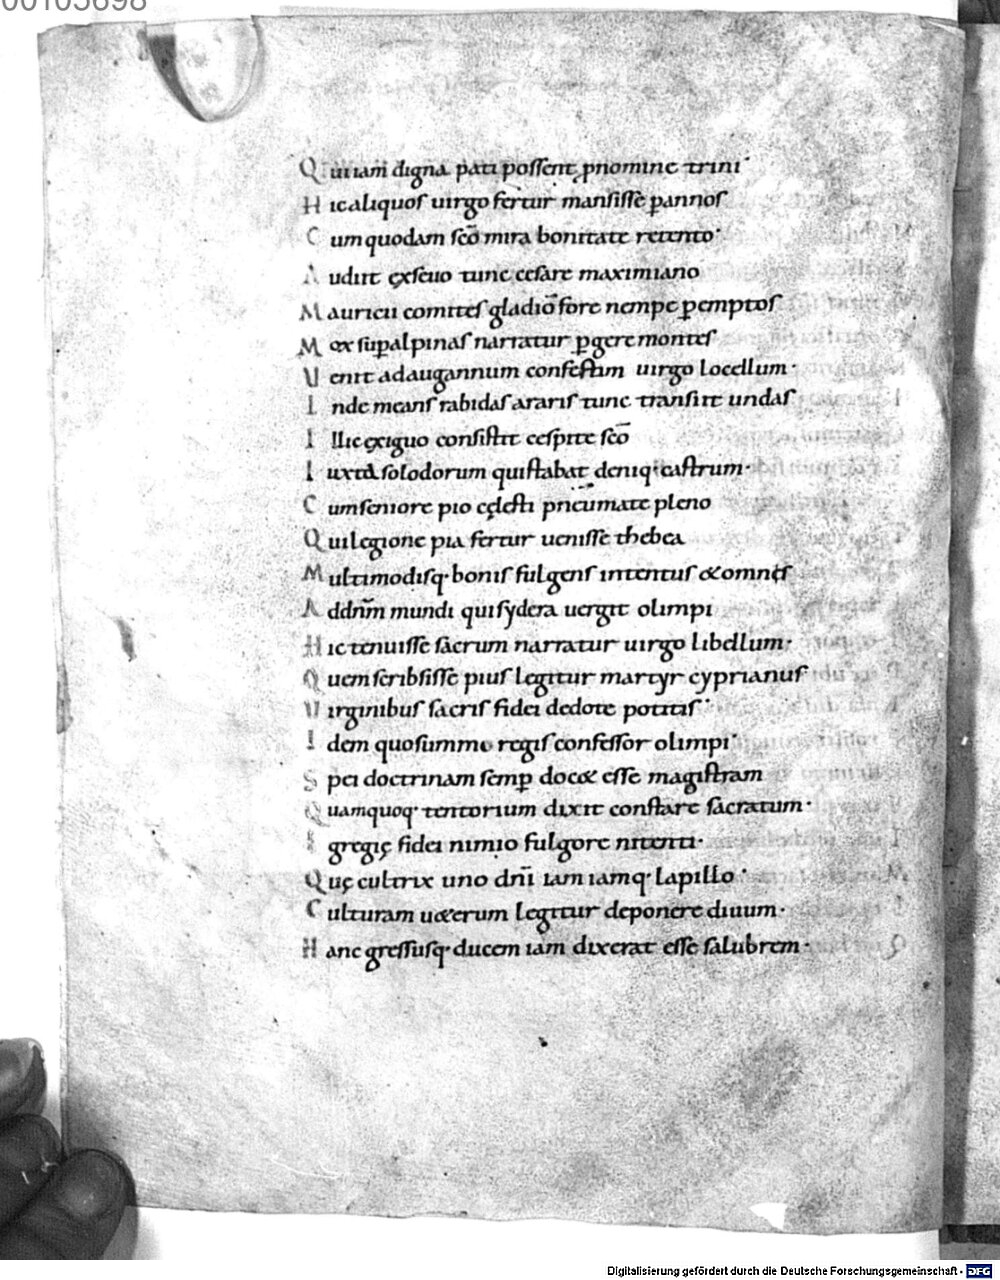 00105698
Qui iam digna pati possent, pnomine trini
Hic aliquos uirgo fertur mansisse pannos
Cum quodam scō mira bonitate retento
Audiit exseuo tunc cesare maximiano
Mauricii comites gladiō fore nempe pemptos
Mox supalpinas narratur pgere montes
Uenit ad augannum confestim uirgo locellum
Inde means rabidas araris tunc transiit undas
Illic exiguo consistit cespite scō
Iuxta solodorum qui stabat deniq; castrum
Cum seniore pio cęlesti pneumate pleno
Qui legione pia fertur uenisse thebea
Multimodisq; bonis fulgens intentus & omnes
Ad dn̄m mundi qui sydera uergit olimpi
Hic tenuisse sacrum narratur uirgo libellum
Quem scribsisse pius legitur martyr cyprianus
Uirginibus sacris fidei de dote potitis
Idem quo summo regis confessor olimpi
Spei doctrinam semp doc& esse magistram
Quamquoq; tentorium dixit constare sacratum
Egregię fidei nimio fulgore nitenti
Quę cultrix uno dn̄i iam iamq; lapillo
Culturam u&erum legitur deponere diuum
Hanc gressusq; ducem iam dixerat esse salubrem
Digitalisierung gefördert durch die Deutsche Forschungsgemeinschaft - DFG